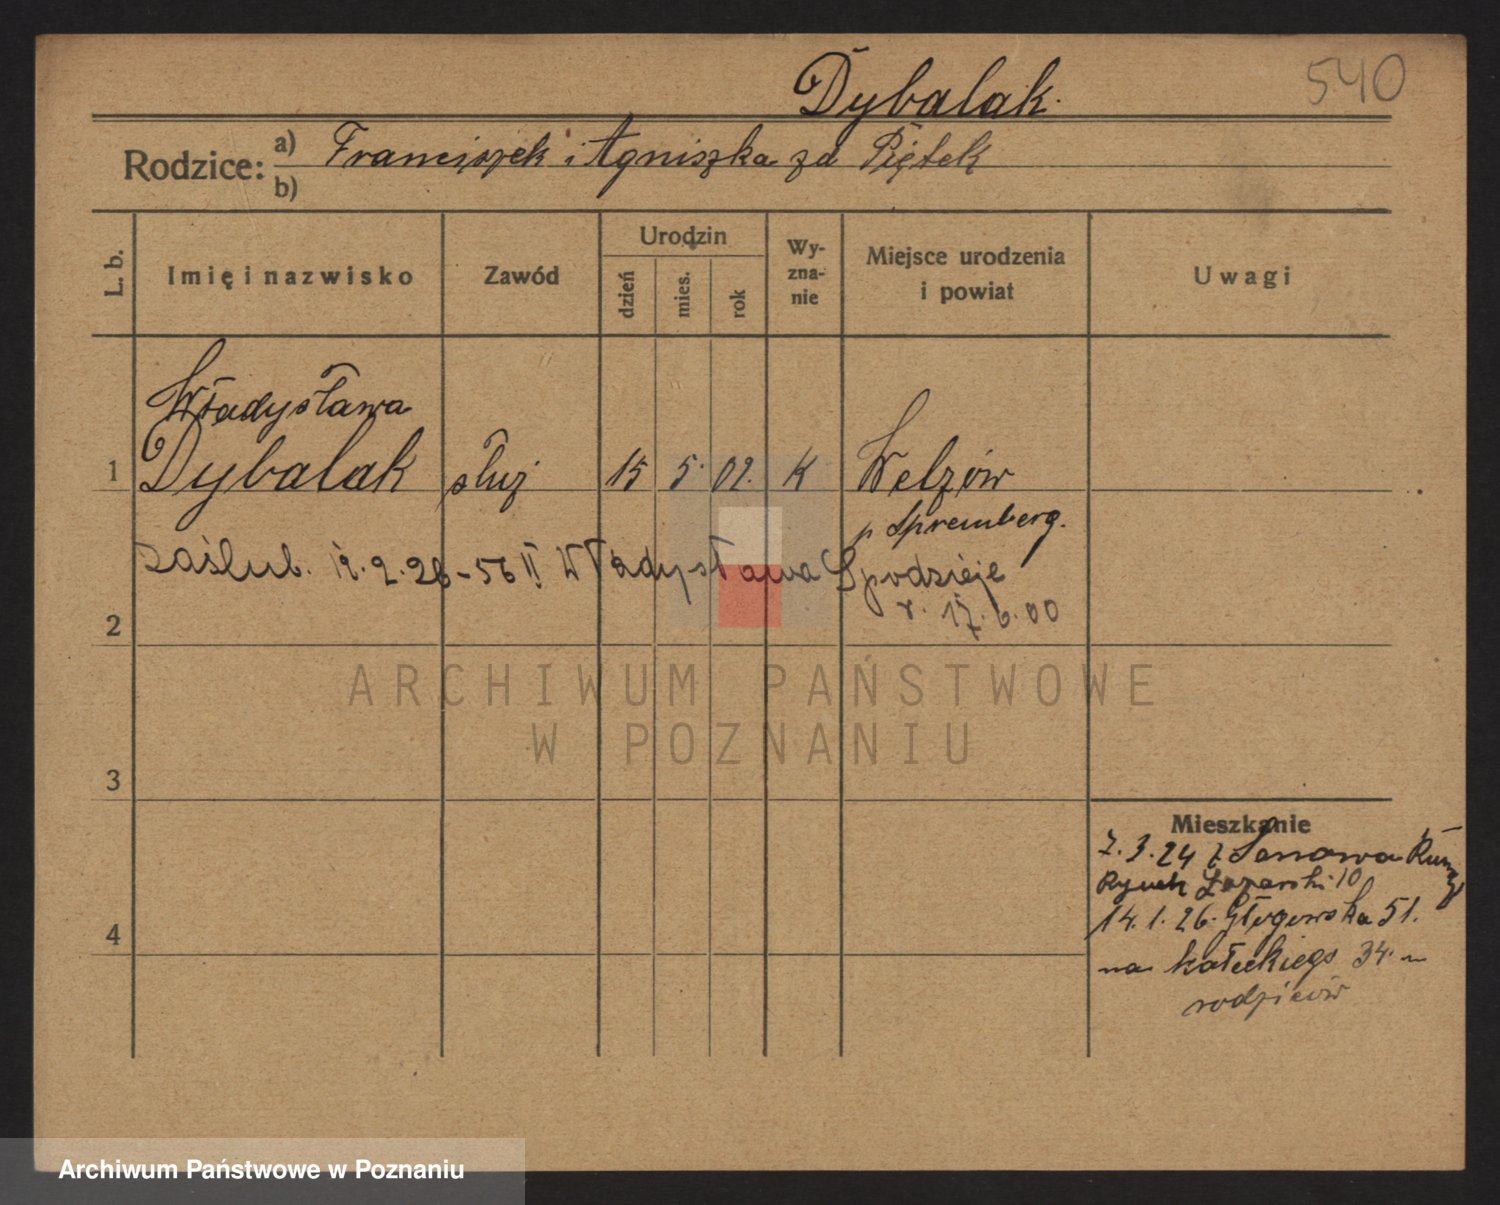 540
Dybalak.
Rodzice: a) Franciszek i Agniszka zd Piętek
b)
L. b.
Imię i nazwisko
Zawód
Urodzin
dzień
mies.
rok
Wy-
zna-
nie
Miejsce urodzenia
i powiat
Uwagi
Władysława
1 Dybalak służ 15 5. 02. K Welzów
p Spremberg.
Zaślub. 12.2.26 - 56 II Władysława Spodzieje
r. 17.6.00
2
ARCHIWUM PAŃSTWOWE
W POZNANIU
3
Mieszkanie
7.3.24 z
Rynek Łazarski 10
4
14.1.26. Głogowska 51.
na 34.
rodziców
Archiwum Państwowe w Poznaniu